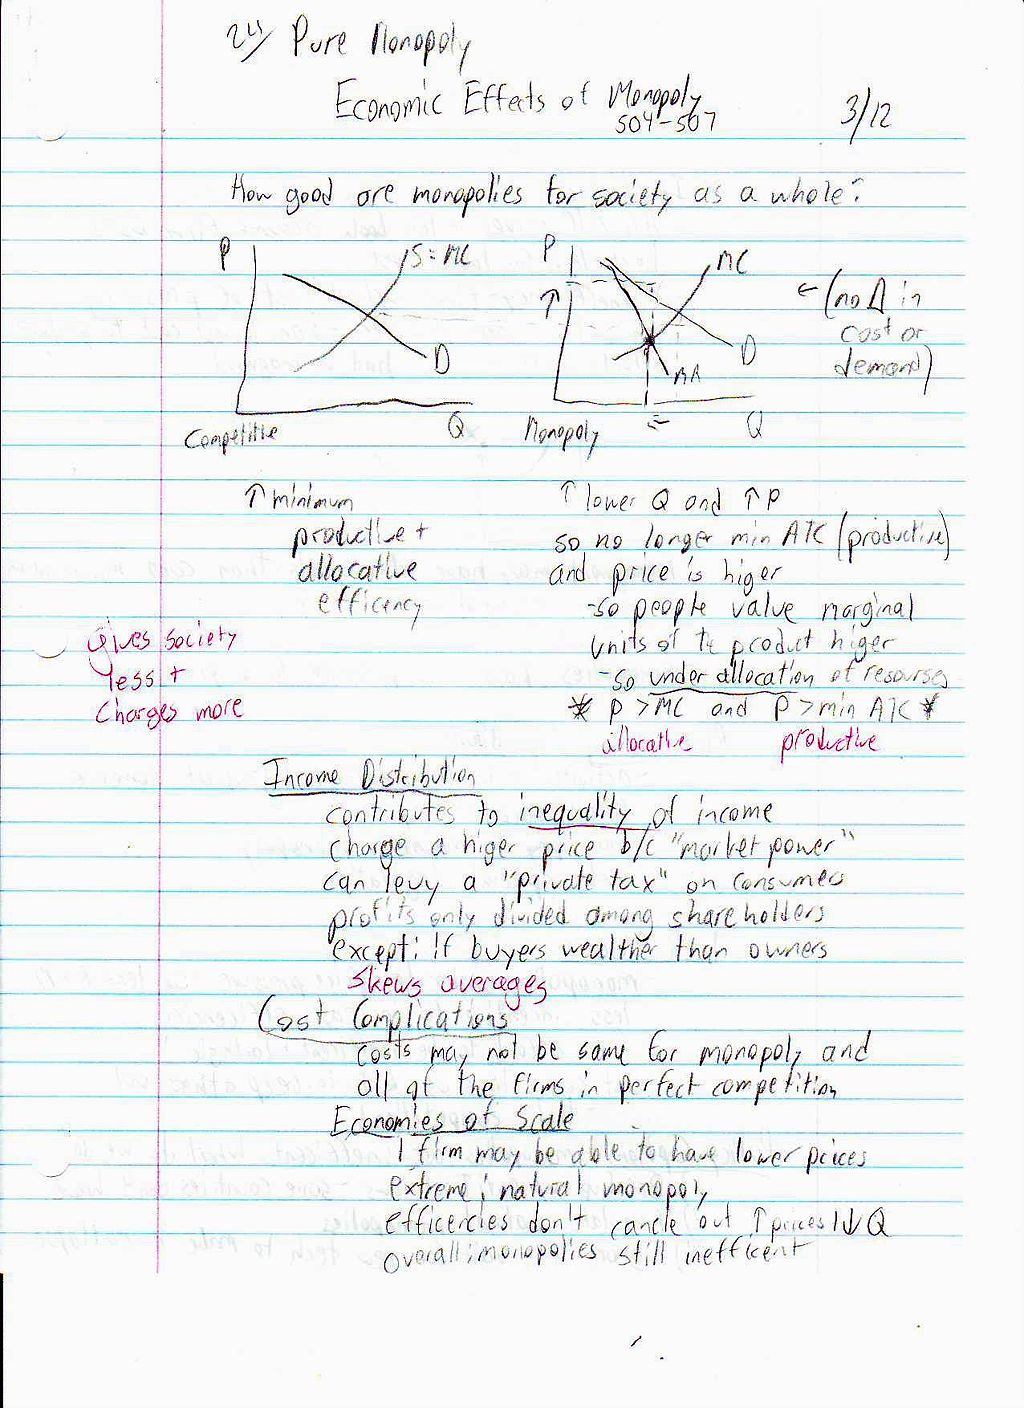 24/ Pure Monopoly
Economic Effects of Monopoly
504-507
3/12
How good are monopolies for society as a whole?
P
S=MC
D
Q
Competitive
P
↑
MC
D
MR
Q
Monopoly
← (no Δ in
cost or
demand)
↑ minimum
productive +
allocative
efficency
↑ lower Q and ↑ P
so no longer min ATC (productive)
and price is higer
-so people value marginal
units of the product higer
-so under allocation of resourses
* P > MC and P > min ATC *
allocative productive
Gives society
less +
charges more
Income Distribution
contributes to inequality of income
charge a higer price b/c "market power"
can levy a "private tax" on consumers
profits only divided among shareholders
except: if buyers wealther than owners
skews averages
Cost Complications
costs may not be same for monopoly and
all of the firms in perfect competition
Economies of Scale
1 firm may be able to have lower prices
extreme: natural monopoly
efficercies don't cancle out ↑ prices ↓ Q
overall: monopolies still inefficent